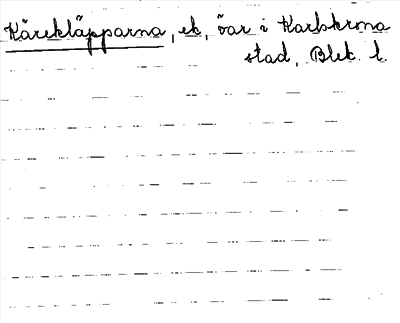 Kärekläpparna, ek, öar i Karlskrona
stad, Blek. l.